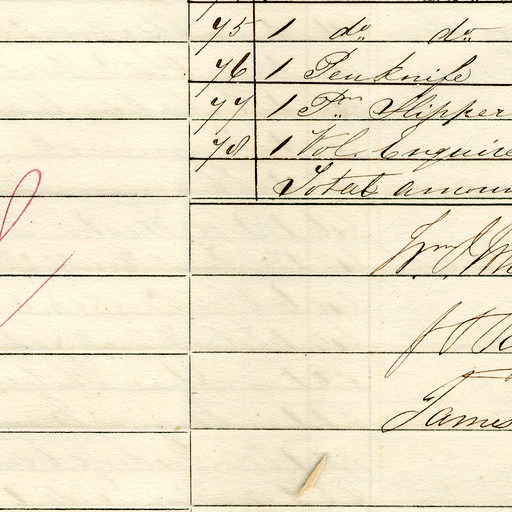 75 1 do do
76 1 Penknife
77 1 Pr Slipper
78 1 Vol. Enquire
Total amoun
James